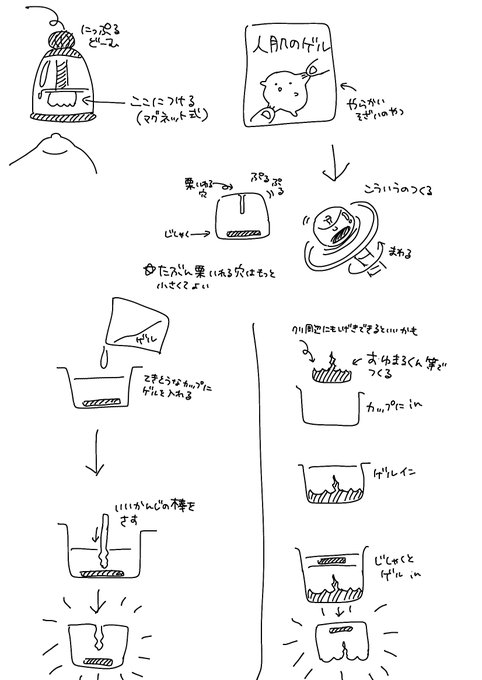 にっぷる
どーむ
ここにつける
(マグネット式)
人肌のゲル
やらかい
そざいのやつ
栗いれる
穴
ぷるぷる
じしゃく
こういうのつくる
まわる
たぶん栗いれる穴はもっと
小さくてよい
ゲル
てきとうなカップに
ゲルを入れる
いいかんじの棒を
さす
クリ周辺にもしげきできるといいかも
おゆまるくん等で
つくる
カップにin
ゲルイン
じしゃくと
ゲルin